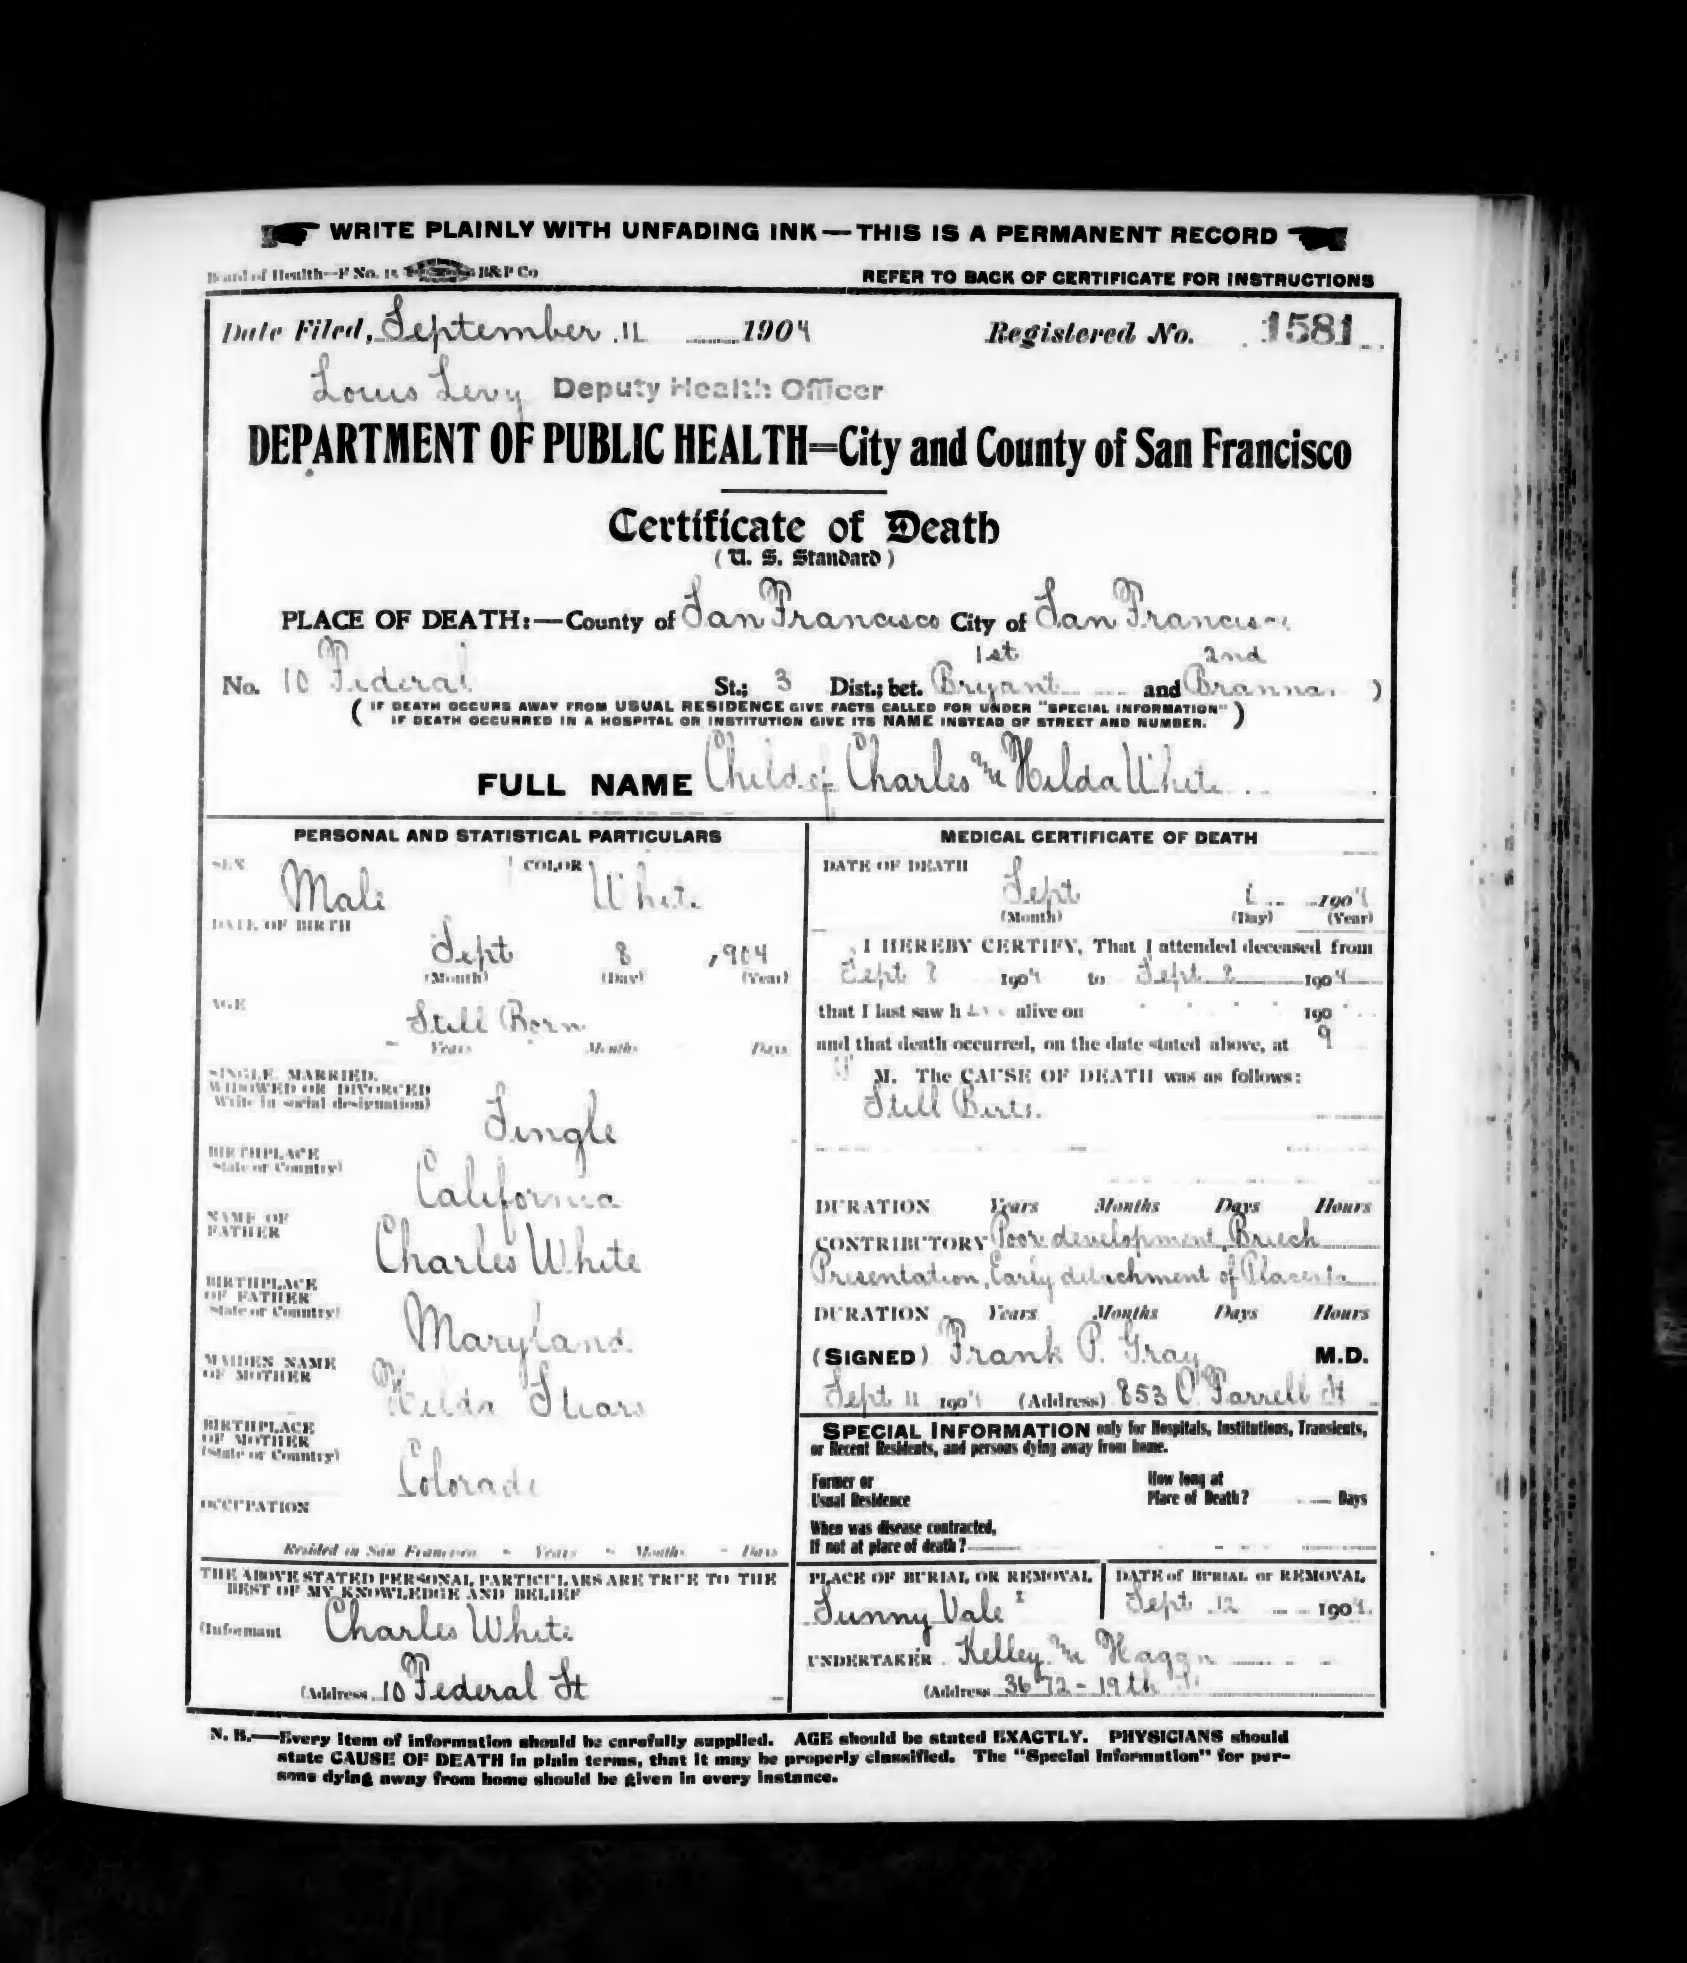 WRITE PLAINLY WITH UNFADING INK—THIS IS A PERMANENT RECORD
Board of Health—F No. 15 B&P Co REFER TO BACK OF CERTIFICATE FOR INSTRUCTIONS
Date Filed, September 11 1904 Registered No. 1581
Louis Levy Deputy Health Officer
DEPARTMENT OF PUBLIC HEALTH=City and County of San Francisco
Certificate of Death
(U. S. Standard)
PLACE OF DEATH:—County of San Francisco City of San Francisco
1st 2nd
No. 10 Federal St.; 3 Dist.; bet. Bryant and Brannan )
( IF DEATH OCCURS AWAY FROM USUAL RESIDENCE GIVE FACTS CALLED FOR UNDER "SPECIAL INFORMATION" )
( IF DEATH OCCURRED IN A HOSPITAL OR INSTITUTION GIVE ITS NAME INSTEAD OF STREET AND NUMBER. )
FULL NAME Child of Charles and Hilda White
PERSONAL AND STATISTICAL PARTICULARS
SEX Male COLOR White
DATE OF BIRTH
Sept 8 1904
(Month) (Day) (Year)
AGE
Still Born
Years Months Days
SINGLE, MARRIED,
WIDOWED OR DIVORCED
Write in social designation)
Single
BIRTHPLACE
State or Country)
California
NAME OF
FATHER
Charles White
BIRTHPLACE
OF FATHER
State or Country)
Maryland
MAIDEN NAME
OF MOTHER
Hilda
BIRTHPLACE
OF MOTHER
(State or Country)
Colorado
OCCUPATION
Resided in San Francisco - Years - Months - Days
THE ABOVE STATED PERSONAL PARTICULARS ARE TRUE TO THE
BEST OF MY KNOWLEDGE AND BELIEF
(Informant Charles White
(Address 10 Federal St
MEDICAL CERTIFICATE OF DEATH
DATE OF DEATH
Sept 1904
(Month) (Day) (Year)
I HEREBY CERTIFY, That I attended deceased from
Sept 1904 to Sept 1904
that I last saw h alive on 190
and that death occurred, on the date stated above, at 9
M. The CAUSE OF DEATH was as follows:
Still Birth
DURATION Years Months Days Hours
CONTRIBUTORY Poor development, Breech
Presentation, Early detachment of Placenta
DURATION Years Months Days Hours
(SIGNED) Frank P. Gray M.D.
Sept 11 1904 (Address) 853 O'Farrell St
SPECIAL INFORMATION only for Hospitals, Institutions, Transients,
or Recent Residents, and persons dying away from home.
Former or
Usual Residence
How long at
Place of Death? Days
When was disease contracted,
If not at place of death?
PLACE OF BURIAL OR REMOVAL DATE of BURIAL or REMOVAL
Sunny Vale Sept 12 1904
UNDERTAKER Kelley and Hagan
(Address 3672-19th St
N. B.—Every item of information should be carefully supplied. AGE should be stated EXACTLY. PHYSICIANS should
state CAUSE OF DEATH in plain terms, that it may be properly classified. The "Special Information" for per-
sons dying away from home should be given in every instance.